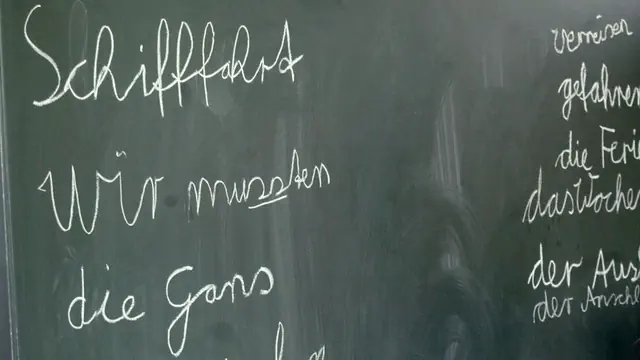 Schifffahrt
Wir mussten
die Gans
verreisen
gefahren
die Ferie
das Woche
der Aus
der Ansch